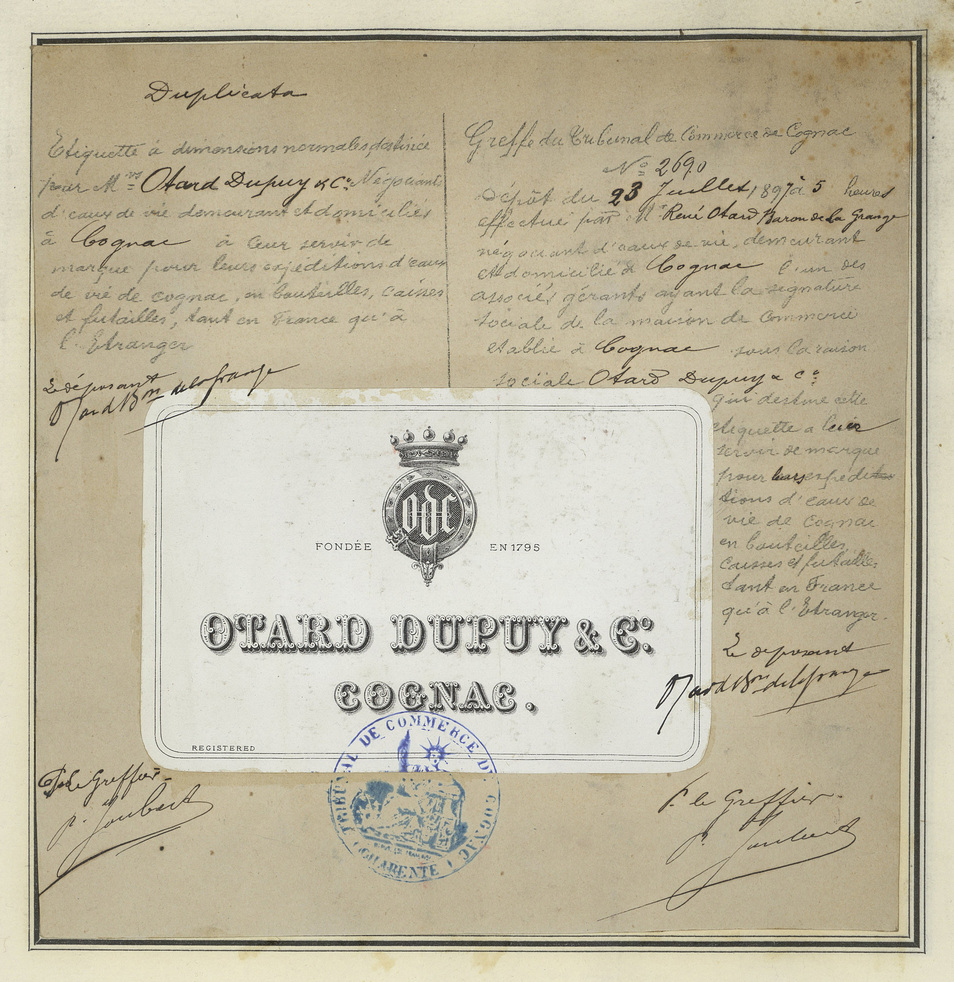 Duplicata
Etiquette à dimensions normales, destinée
pour M.rs Otard Dupuy & Cº. Négociants
d'eaux de vie demeurant et domiciliés
à Cognac à leur servir de
marque pour leurs expéditions d'eaux
de vie de cognac, en bouteilles, caisses
et futailles, tant en France qu'à
l'Etranger
Le déposant
Otard Bon de la Grange
Greffe du Tribunal de Commerce de Cognac
Nº 2690
Dépôt du 23 Juillet 1897 à 5 heures
effectué par Mr René Otard Baron de la Grange
négociant d'eaux de vie, demeurant
et domicilié à Cognac l'un des
associés gérants ayant la signature
sociale de la maison de Commerce
établie à Cognac sous la raison
sociale Otard Dupuy & Cº
qui destine cette
étiquette à leur
servir de marque
pour leurs expédi-
tions d'eaux de
vie de Cognac
en bouteilles
caisses et futailles
tant en France
qu'à l'Etranger.
Le déposant
Otard Bon de la Grange
ODC
FONDÉE EN 1795
OTARD DUPUY & Cº.
COGNAC.
REGISTERED
TRIBUNAL DE COMMERCE DE COGNAC
(CHARENTE)
P. le Greffier
P. Joubert
P. le Greffier
P. Joubert